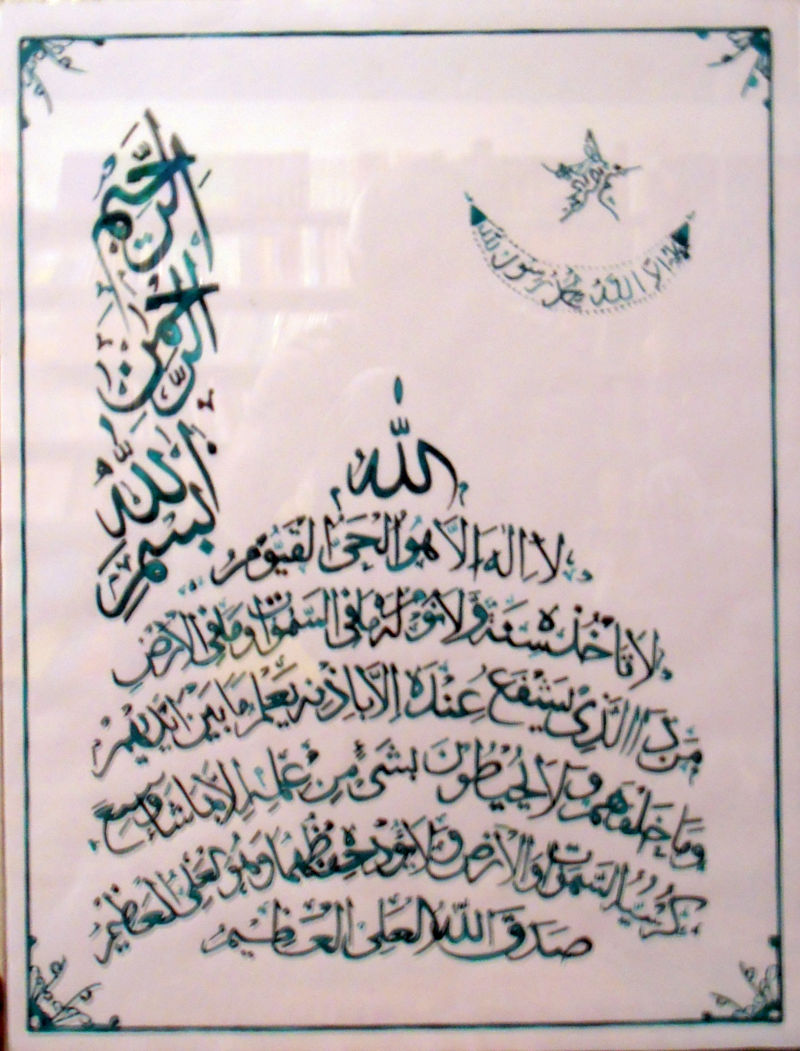 بسم الله الرحمن الرحيم
لا اله الا الله محمد رسول الله
الله
لَا اِلٰهَ اِلَّا هُوَ الْحَىُّ الْقَيُّوْمُ
لَا تَاْخُذُهٗ سِنَةٌ وَّلَا نَوْمٌ لَهٗ مَا فِى السَّمٰوٰتِ وَمَا فِى الْاَرْضِ
مَنْ ذَا الَّذِىْ يَشْفَعُ عِنْدَهٗ اِلَّا بِاِذْنِهٖ يَعْلَمُ مَا بَيْنَ اَيْدِيْهِمْ
وَمَا خَلْفَهُمْ وَلَا يُحِيْطُوْنَ بِشَىْءٍ مِّنْ عِلْمِهٖ اِلَّا بِمَا شَاءَ وَسِعَ
كُرْسِيُّهُ السَّمٰوٰتِ وَالْاَرْضَ وَلَا يَئُوْدُهٗ حِفْظُهُمَا وَهُوَ الْعَلِىُّ الْعَظِيْمُ
صَدَقَ اللّٰهُ الْعَلِىُّ الْعَظِيْمُ